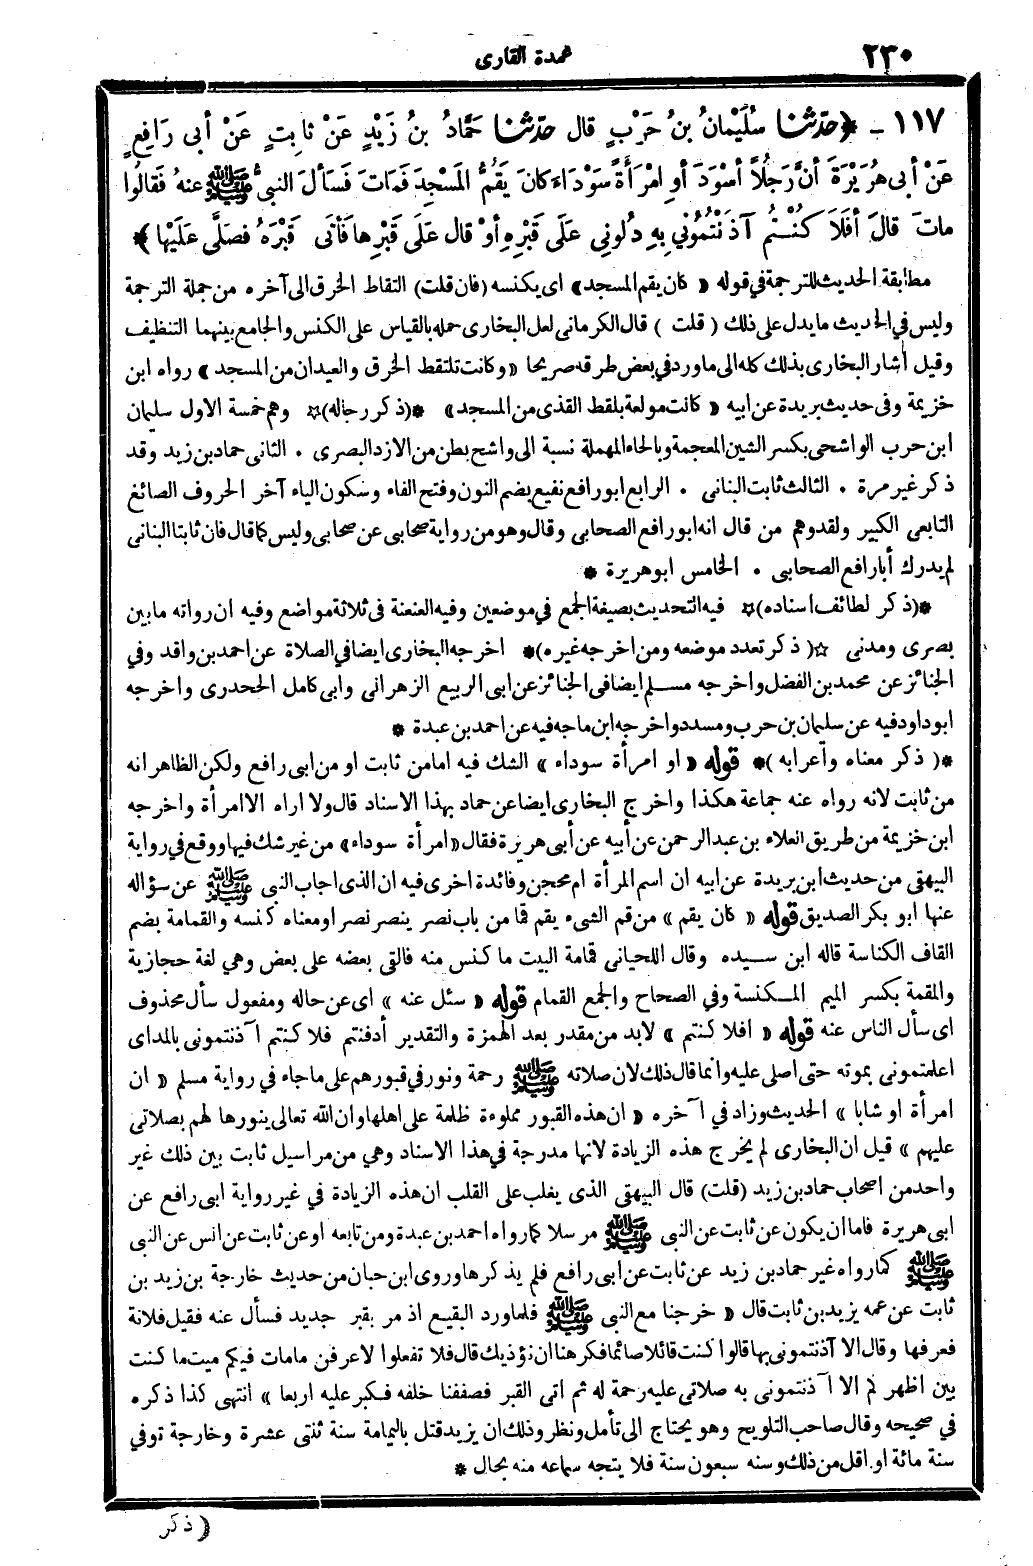 ٢٣٠
عمدة القارى
١١٧ - ﴿حدّثنا سُلَيْمانُ بنُ حَرْبٍ قال حدّثنا حَمَّادُ بنُ زَيْدٍ عَنْ ثابِتٍ عَنْ أبى رَافِعٍ
عَنْ أبى هُرَيْرَةَ أنَّ رَجُلاً أسْوَدَ أوِ امْرَأةً سَوْدَاءَ كانَ يَقُمُّ المَسْجِدَ فَمَاتَ فَسَألَ النبىُّ ﷺ عنهُ فَقالُوا
ماتَ قالَ أفَلَا كُنْتُمْ آذَنْتُمُونِي بِهِ دُلُونِي عَلَى قَبْرِهِ أوْ قال عَلَى قَبْرِها فَأتَى قَبْرَهُ فصَلَّى عَلَيْها﴾
مطابقة الحديث للترجمة في قوله « كان يقم المسجد » اى يكنسه (فان قلت) التقاط الخرق الى آخره من جملة الترجمة
وليس في الحديث ما يدل على ذلك ( قلت ) قال الكرمانى لعل البخارى حمله بالقياس على الكنس والجامع بينهما التنظيف
وقيل أشار البخارى بذلك كله الى ما ورد في بعض طرقه صريحا «وكانت تلتقط الخرق والعيدان من المسجد » رواه ابن
خزيمة وفى حديث بريدة عن ابيه « كانت مولعة بلقط القذى من المسجد » *(ذكر رجاله)☆ وهم خمسة الاول سليمان
ابن حرب الواشحى بكسر الشين المعجمة وبالحاء المهملة نسبة الى واشح بطن من الازد البصرى . الثانى حماد بن زيد وقد
ذكر غير مرة . الثالث ثابت البنانى . الرابع ابو رافع نفيع بضم النون وفتح الفاء وسكون الياء آخر الحروف الصائغ
التابعى الكبير ولقد وهم من قال انه ابو رافع الصحابى وقال وهو من رواية صحابى عن صحابى وليس كما قال فان ثابتا البنانى
لم يدرك أبا رافع الصحابى . الخامس ابو هريرة *
*(ذكر لطائف اسناده)☆ فيه التحديث بصيغة الجمع في موضعين وفيه العنعنة فى ثلاثة مواضع وفيه ان رواته ما بين
بصرى ومدنى ☆( ذكر تعدد موضعه ومن اخرجه غيره)* اخرجه البخارى ايضا في الصلاة عن احمد بن واقد وفي
الجنائز عن محمد بن الفضل واخرجه مسلم ايضا فى الجنائز عن ابى الربيع الزهرانى وابى كامل الجحدرى واخرجه
ابو داود فيه عن سليمان بن حرب ومسدد واخرجه ابن ماجه فيه عن احمد بن عبدة *
*( ذكر معناه واعرابه )* قوله « او امرأة سوداء » الشك فيه امامن ثابت او من ابى رافع ولكن الظاهر انه
من ثابت لانه رواه عنه جماعة هكذا واخرج البخارى ايضا عن حماد بهذا الاسناد قال ولا اراه الا امرأة واخرجه
ابن خزيمة من طريق العلاء بن عبد الرحمن عن أبيه عن أبى هريرة فقال «امرأة سوداء» من غير شك فيها ووقع في رواية
البيهقى من حديث ابن بريدة عن ابيه ان اسم المرأة ام محجن وفائدة اخرى فيه ان الذى اجاب النبى ﷺ عن سؤاله
عنها ابو بكر الصديق قوله « كان يقم » من قم الشىء يقم قما من باب نصر ينصر نصرا ومعناه كنسه والقمامة بضم
القاف الكناسة قاله ابن سيده وقال اللحيانى قمامة البيت ما كنس منه فالقى بعضه على بعض وهي لغة حجازية
والمقمة بكسر الميم المكنسة وفي الصحاح والجمع القمام قوله « سئل عنه » اى عن حاله ومفعول سأل محذوف
اى سأل الناس عنه قوله « افلا كنتم » لابد من مقدر بعد الهمزة والتقدير أدفنتم فلا كنتم آذنتمونى بالمداى
اعلمتمونى بموته حتى اصلى عليه وانما قال ذلك لان صلاته ﷺ رحمة ونور في قبورهم على ما جاء في رواية مسلم « ان
امرأة او شابا » الحديث وزاد في آخره « ان هذه القبور مملوءة ظلمة على اهلها وان الله تعالى ينورها لهم بصلاتى
عليهم » قيل ان البخارى لم يخرج هذه الزيادة لانها مدرجة في هذا الاسناد وهي من مراسيل ثابت بين ذلك غير
واحد من اصحاب حماد بن زيد (قلت) قال البيهقى الذى يغلب على القلب ان هذه الزيادة في غير رواية ابى رافع عن
ابى هريرة فاما ان يكون عن ثابت عن النبى ﷺ مرسلا كما رواه احمد بن عبدة ومن تابعه او عن ثابت عن انس عن النبى
ﷺ كما رواه غير حماد بن زيد عن ثابت عن ابى رافع فلم يذكرها وروى ابن حبان من حديث خارجة بن زيد بن
ثابت عن عمه يزيد بن ثابت قال « خرجنا مع النبى ﷺ فلما ورد البقيع اذ مر بقبر جديد فسأل عنه فقيل فلانة
فعرفها وقال الا آذنتمونى بها قالوا كنت قائلا صائما فكرهنا ان نؤذيك قال فلا تفعلوا لا عرفن ما مات فيكم ميت ما كنت
بين اظهر لم الا آذنتمونى به صلاتى عليه رحمة له ثم اتى القبر فصففنا خلفه فكبر عليه اربعا » انتهى كذا ذكره
في صحيحه وقال صاحب التلويح وهو يحتاج الى تأمل ونظر وذلك ان يزيد قتل باليمامة سنة ثنتى عشرة وخارجة توفي
سنة مائة او اقل من ذلك وسنه سبعون سنة فلا يتجه سماعه منه بحال *
( ذكر